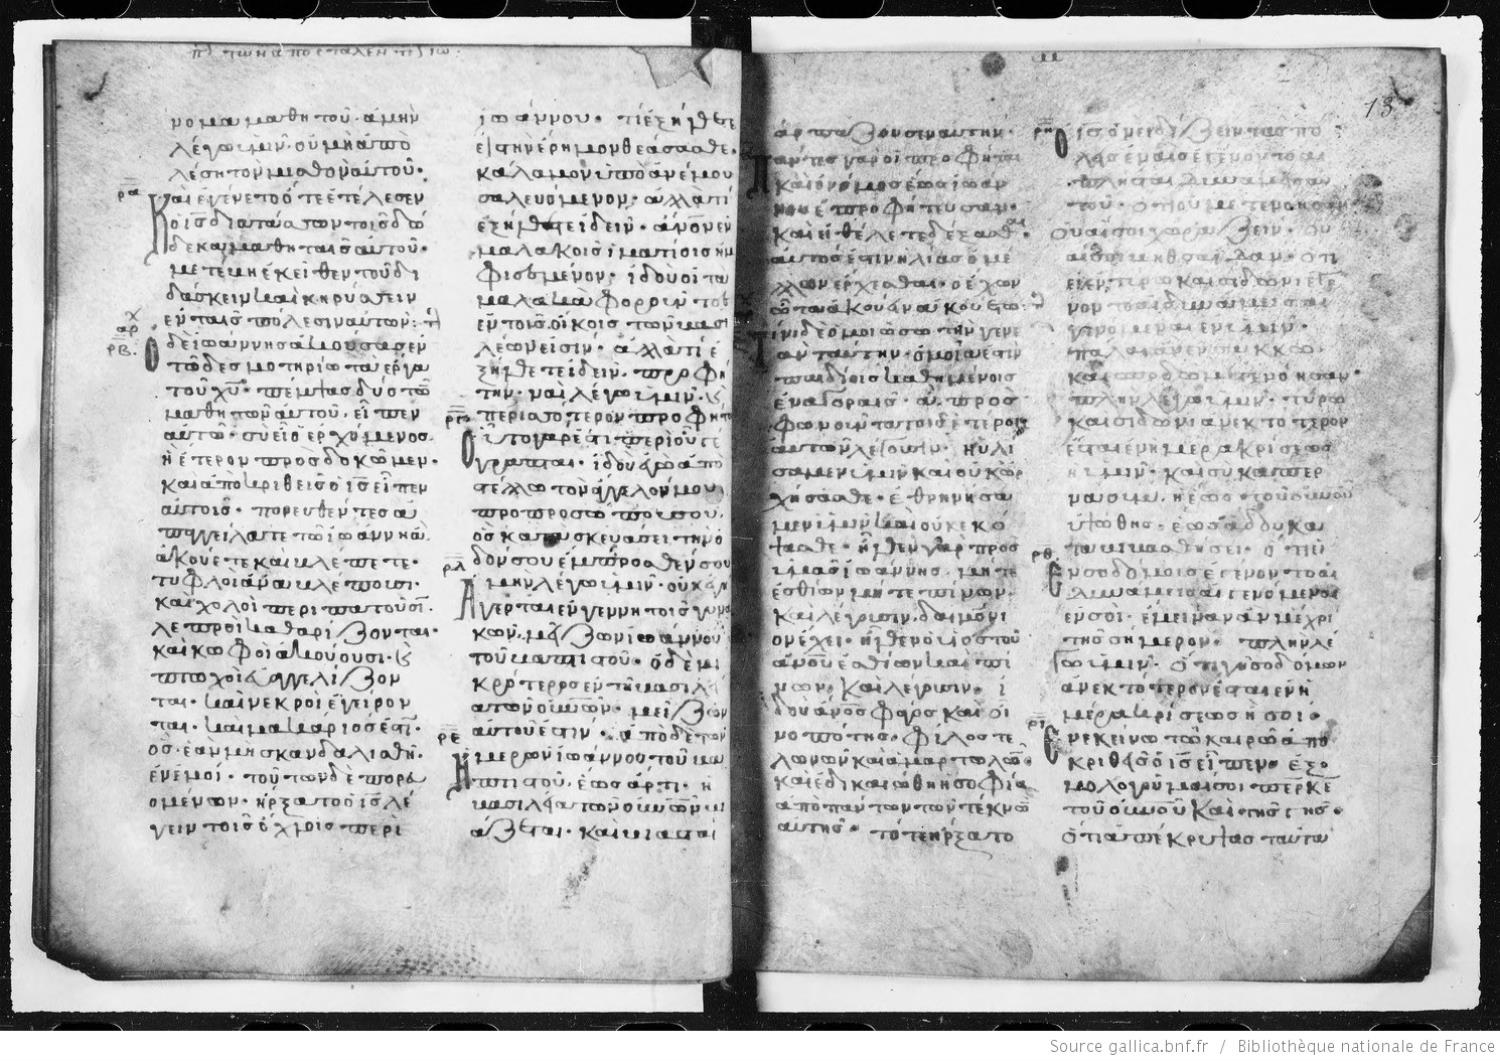 νομα μαθητοῦ· ἀμὴν
λέγω ὑμῖν· οὐ μὴ ἀπο
λέση τὸν μισθὸν αὐτοῦ·
ρα Καὶ ἐγένετο ὅτε ἐτέλεσεν
ὁ ι̅ς̅ διατάσσων τοῖς δώ
δεκα μαθηταῖς αὐτοῦ·
μετέβη ἐκεῖθεν τοῦ δι
δάσκειν καὶ κηρύσσειν
ἐν ταῖς πόλεσιν αὐτῶν:
ρβ Ὁ δὲ ἰωάννης ἀκούσας ἐν
τῶ δεσμωτηρίω τὰ ἔργα
τοῦ χ̅υ̅· πέμψας δύο τῶν
μαθητῶν αὐτοῦ· εἶπεν
αὐτῶ· σὺ εἶ ὁ ἐρχόμενος·
ἢ ἕτερον προσδοκῶμεν·
καὶ ἀποκριθεὶς ὁ ι̅ς̅ εἶπεν
αὐτοῖς· πορευθέντες ἀ
παγγείλατε τῶ ἰωάννη ἃ
ἀκούετε καὶ βλέπετε·
τυφλοὶ ἀναβλέπουσι·
καὶ χωλοὶ περιπατοῦσι·
λεπροὶ καθαρίζονται·
καὶ κωφοὶ ἀκούουσι· καὶ
πτωχοὶ εὐαγγελίζον
ται· καὶ νεκροὶ ἐγείρον
ται· καὶ μακάριός ἐστι·
ὃς ἐὰν μὴ σκανδαλισθῆ
ἐν ἐμοί· τούτων δὲ πορευ
ομένων· ἤρξατο ὁ ι̅ς̅ λέ
γειν τοῖς ὄχλοις περὶ
ἰωάννου· τί ἐξήλθετε
εἰς τὴν ἔρημον θεάσασθε·
κάλαμον ὑπὸ ἀνέμου
σαλευόμενον· ἀλλὰ τί
ἐξήλθετε ἰδεῖν· ἄ̅ν̅ο̅ν̅ ἐν
μαλακοῖς ἱματίοις ἠμ
φιεσμένον· ἰδοὺ οἱ τὰ
μαλακὰ φοροῦντες
ἐν τοῖς οἴκοις τῶν βασι
λέων εἰσίν· ἀλλὰ τί ἐ
ξήλθετε ἰδεῖν· προφή
την· ναὶ λέγω ὑμῖν· καὶ
περισσότερον προφήτου
ργ Οὗτος γάρ ἐστι περὶ οὗ γέ
γραπται· ἰδοὺ ἐγὼ ἀπο
στέλλω τὸν ἄγγελόν μου
πρὸ προσώπου σου·
ὃς κατασκευάσει τὴν ὁ
δόν σου ἔμπροσθέν σου
ρδ Ἀμὴν λέγω ὑμῖν· οὐκ ἐγή
γερται ἐν γεννητοῖς γυναι
κῶν· μείζων ἰωάννου
τοῦ βαπτιστοῦ· ὁ δὲ μι
κρότερος ἐν τῆ βασιλεία
τῶν ο̅υ̅ν̅ῶ̅ν̅· μείζων
αὐτοῦ ἐστιν· ἀπὸ δὲ τῶν
ρε ἡμερῶν ἰωάννου τοῦ βα
πτιστοῦ· ἕως ἄρτι· ἡ
βασιλεία τῶν ο̅υ̅ν̅ῶ̅ν̅ βι
άζεται· καὶ βιασταὶ
ἁρπάζουσιν αὐτήν·
Πάντες γὰρ οἱ προφῆται
καὶ ὁ νόμος ἕως ἰωάν
νου ἐπροφήτευσαν·
καὶ εἰ θέλετε δέξασθαι·
αὐτός ἐστιν ἠλίας ὁ μέ
λλων ἔρχεσθαι· ὁ ἔχων
ὦτα ἀκούειν ἀκουέτω:
Τίνι δὲ ὁμοιώσω τὴν γενε
ὰν ταύτην· ὁμοία ἐστὶν
παιδίοις καθημένοις
ἐν ἀγοραῖς· ἃ προσ
φωνοῦντα τοῖς ἑτέροις
αὐτῶν λέγουσιν· ηὐλή
σαμεν ὑμῖν καὶ οὐκ ὠρ
χήσασθε· ἐθρηνήσα
μεν ὑμῖν καὶ οὐκ ἐκό
ψασθε· ἦλθεν γὰρ πρὸς
ὑμᾶς ἰωάννης· μήτε
ἐσθίων μήτε πίνων·
καὶ λέγουσιν· δαιμόνι
ον ἔχει· ἦλθεν ὁ υἱὸς τοῦ
ἀ̅ν̅ο̅υ̅ ἐσθίων καὶ πί
νων· καὶ λέγουσιν· ἰ
δοὺ ἄ̅ν̅ο̅ς̅ φάγος καὶ οἰ
νοπότης· φίλος τε
λωνῶν καὶ ἁμαρτωλῶν·
καὶ ἐδικαιώθη ἡ σοφία
ἀπὸ πάντων τῶν τέκνων
αὐτῆς· τότε ἤρξατο
ρη Ὁ ι̅ς̅ ὀνειδίζειν τὰς πό
λεις ἐν αἷς ἐγένοντο αἱ
οὐαί σοι χοραζεὶν· οὐ
αί σοι βηθσαϊδὰν· ὅτι
εἰ ἐν τύρω καὶ σιδῶνι ἐγέ
νοντο αἱ δυνάμεις αἱ
γενόμεναι ἐν ὑμῖν·
πάλαι ἂν ἐν σάκκω
καὶ σποδῶ μετενόησαν·
πλὴν λέγω ὑμῖν· τύρω
καὶ σιδῶνι ἀνεκτότερον
ἔσται ἐν ἡμέρα κρίσεως
ἢ ὑμῖν· καὶ σὺ καπερ
ναοὺμ· ἡ ἕως τοῦ ο̅υ̅ν̅ο̅ῦ̅
ὑψωθεῖσα· ἕως ἅδου κα
ταβιβασθήση· ὅτι εἰ
ρθ Ἐν σοδόμοις ἐγένοντο αἱ
δυνάμεις αἱ γενόμεναι
ἐν σοί· ἔμειναν ἂν μέχρι
τῆς σήμερον· πλὴν λέ
γω ὑμῖν· ὅτι γῆ σοδόμων
ἀνεκτότερον ἔσται ἐν ἡ
μέρα κρίσεως ἢ σοί·
ρι Ἐν ἐκείνω τῶ καιρῶ ἀπο
κριθεὶς ὁ ι̅ς̅ εἶπεν· ἐξο
μολογοῦμαί σοι π̅ε̅ρ̅ κ̅ε̅
τοῦ ο̅υ̅ν̅ο̅ῦ̅ καὶ τῆς γῆς·
ὅτι ἀπέκρυψας ταῦτα
13
Source gallica.bnf.fr / Bibliothèque nationale de France